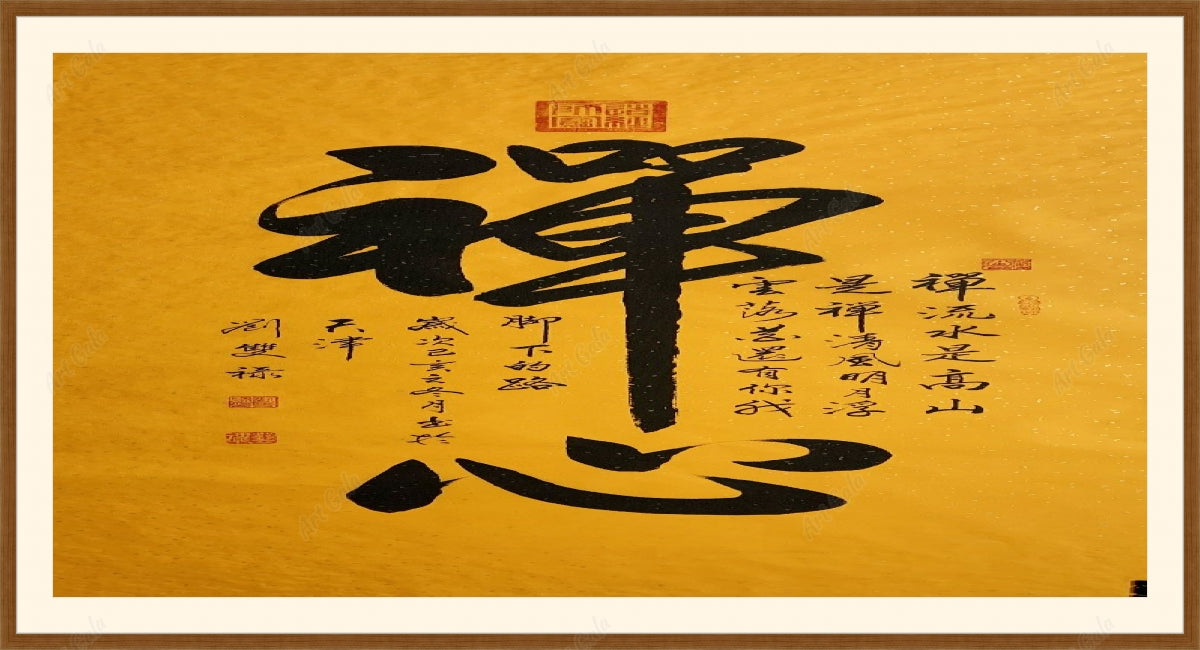 禪心
禪流水是高山
是禪清風明月浮
雲落葉還有你我
脚下的路
歲次己亥冬月書於
天津
劉雙祿
Art Gala